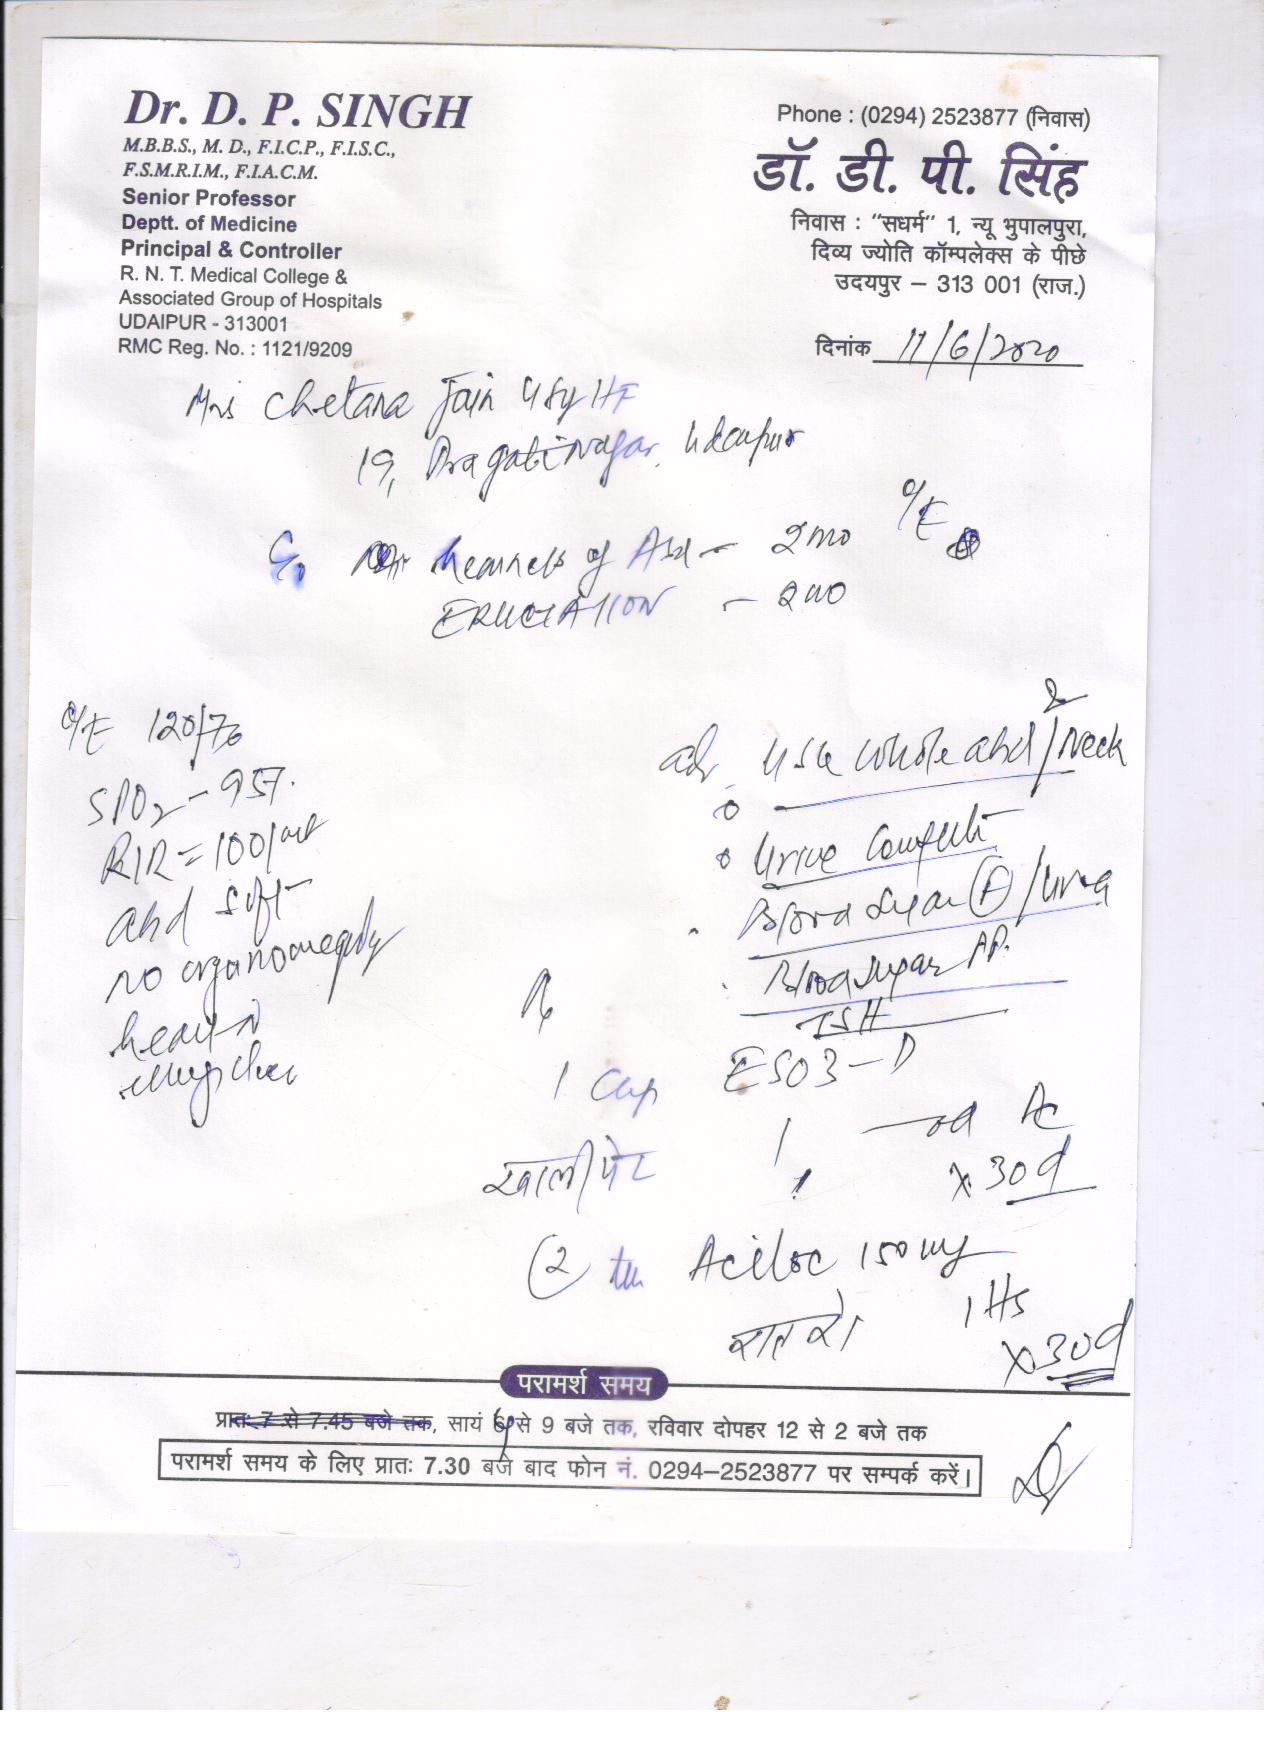 Dr. D. P. SINGH
M.B.B.S., M. D., F.I.C.P., F.I.S.C.,
F.S.M.R.I.M., F.I.A.C.M.
Senior Professor
Deptt. of Medicine
Principal & Controller
R. N. T. Medical College &
Associated Group of Hospitals
UDAIPUR - 313001
RMC Reg. No. : 1121/9209
Phone : (0294) 2523877 (निवास)
डॉ. डी. पी. सिंह
निवास : "सधर्म" 1, न्यू भुपालपुरा,
दिव्य ज्योति कॉम्पलेक्स के पीछे
उदयपुर – 313 001 (राज.)
दिनांक 11/6/2020
Mrs Chetana Jain
19, Pragatinagar, Udaipur
C/o heavness of Abd – 2mo O/E
ERUCTATION – 2mo
O/E 120/70
SPO2 – 95%.
abd soft
no organomegaly
heart N
adv. USG whole abd / Neck
Urine Complete
Blood Sugar (F) / Urea
Blood Sugar PP.
TSH
Rx
1 Cap ESO3-D
1 – od AC
खाली पेट x 30d
(2 Aciloc 150 mg
रात को 1 HS
x 30d
परामर्श समय
प्रातः 7 से 7.45 बजे तक, सायं 6 से 9 बजे तक, रविवार दोपहर 12 से 2 बजे तक
परामर्श समय के लिए प्रातः 7.30 बजे बाद फोन नं. 0294–2523877 पर सम्पर्क करें।